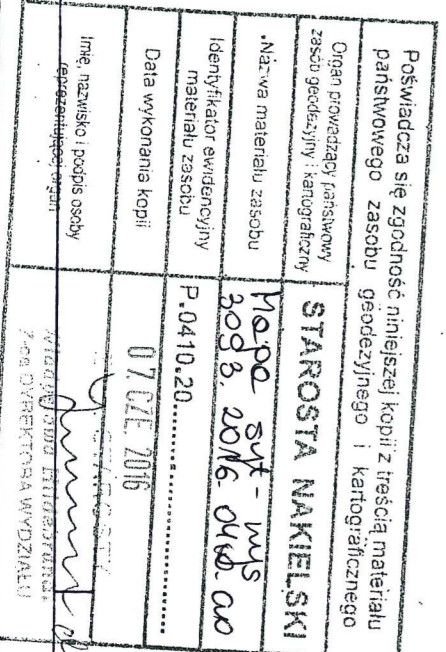 Poświadcza się zgodność niniejszej kopii z treścią materiału
państwowego zasobu geodezyjnego i kartograficznego
Organ prowadzący państwowy
zasób geodezyjny i kartograficzny
STAROSTA NAKIELSKI
Nazwa materiału zasobu
Mapa syt-wys
3093. 2016.
Identyfikator ewidencyjny
materiału zasobu
P.0410.20
Data wykonania kopii
07. CZE. 2016
Imię, nazwisko i podpis osoby
reprezentującej organ
Z-ca DYREKTORA WYDZIAŁU